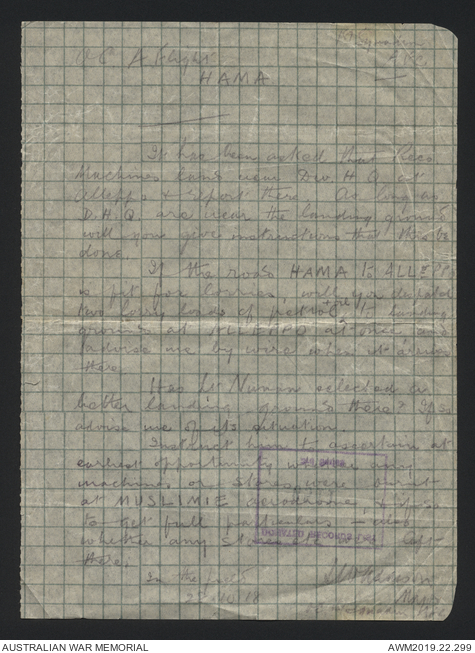 O C A Flight
HAMA
It has been asked that Reco
Machines land near Div H.Q. at
Aleppo & report there. As long as
D.H.Q. are near the landing ground
will you give instructions that this be
done.
If the road HAMA to ALEPPO
is fit for lorries, will you despatch
two lorry loads of petrol to landing
ground at ALEPPO at once and
advise me by wire when it arrives
there.
Has Lt Nunan selected a
better landing ground there? If so
advise me of its situation.
Instruct him to ascertain at
earliest opportunity whether any
machines or stores were burnt
at MUSLIMIE aerodrome, & if so
to get full particulars – also
whether any stores were left
there.
In the field
10 18
Major
AUSTRALIAN WAR MEMORIAL
AWM2019.22.298